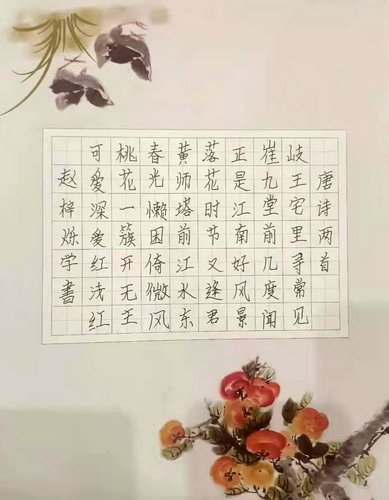 唐诗两首
岐王宅里寻常见
崔九堂前几度闻
正是江南好风景
落花时节又逢君
黄师塔前江水东
春光懒困倚微风
桃花一簇开无主
可爱深爱红浅红
赵梓烁学书